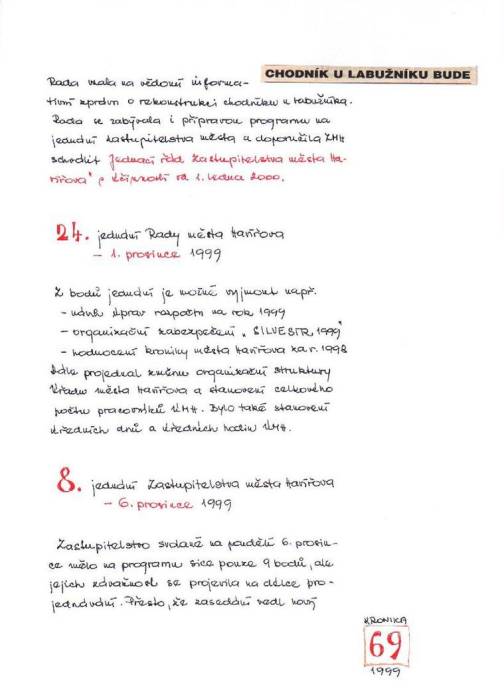 CHODNÍK U LABUŽNÍKU BUDE
Rada vzala na vědomí informa-
tivní zprávu o rekonstrukci chodníku u Labužníka.
Rada se zabývala i přípravou programu na
jednání zastupitelstva města a doporučila ZMH
schválit "Jednací řád Zastupitelstva města Ha-
vířova" s účinností od 1. ledna 2000.
24. jednání Rady města Havířova
- 1. prosince 1999
Z bodů jednání je možné vyjmout např.
- návrh úprav rozpočtu na rok 1999
- organizační zabezpečení "SILVESTR 1999"
- hodnocení kroniky města Havířova za r. 1998
Dále projednal změnu organizační struktury
Úřadu města Havířova a stanovení celkového
počtu pracovníků ÚMH. Bylo také stanovení
úředních dnů a úředních hodin ÚMH.
8. jednání Zastupitelstva města Havířova
- 6. prosince 1999
Zastupitelstvo svolané na pondělí 6. prosin-
ce mělo na programu sice pouze 9 bodů, ale
jejich závažnost se projevila na délce pro-
jednávání. Přesto, že zasedání vedl nový
KRONIKA
69
1999